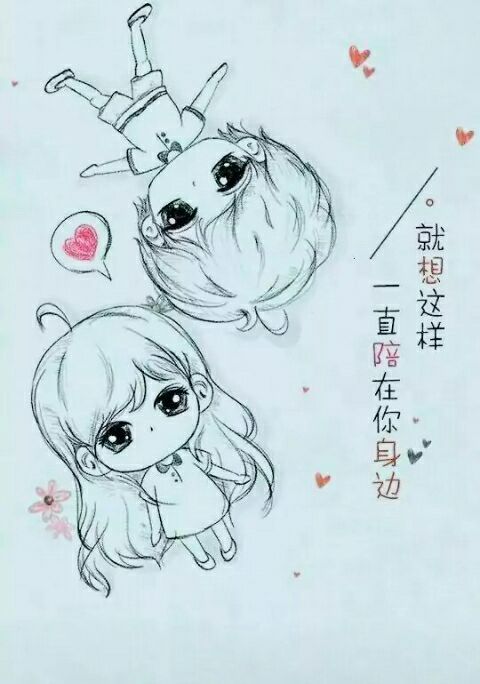 就想这样
一直陪在你身边